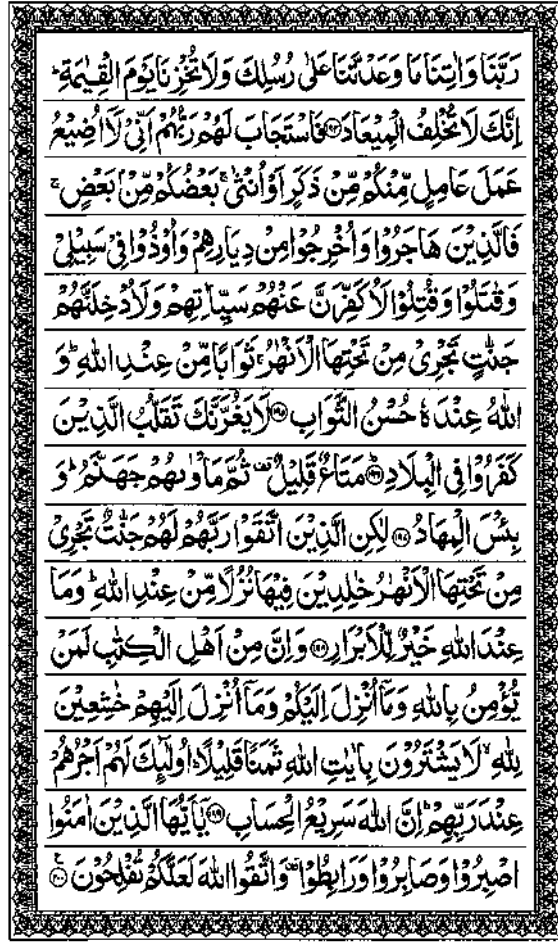 رَبَّنَا وَاٰتِنَا مَا وَعَدْتَّنَا عَلٰى رُسُلِكَ وَلَا تُخْزِنَا يَوْمَ الْقِيٰمَةِ ؕ
اِنَّكَ لَا تُخْلِفُ الْمِيْعَادَ ﴿۱۹۴﴾ فَاسْتَجَابَ لَهُمْ رَبُّهُمْ اَنِّىْ لَاۤ اُضِيْعُ
عَمَلَ عَامِلٍ مِّنْكُمْ مِّنْ ذَكَرٍ اَوْ اُنْثٰى ۚ بَعْضُكُمْ مِّنْۢ بَعْضٍ ۚ
فَالَّذِيْنَ هَاجَرُوْا وَاُخْرِجُوْا مِنْ دِيَارِهِمْ وَاُوْذُوْا فِىْ سَبِيْلِىْ
وَقٰتَلُوْا وَقُتِلُوْا لَاُكَفِّرَنَّ عَنْهُمْ سَيِّاٰتِهِمْ وَلَاُدْخِلَنَّهُمْ
جَنّٰتٍ تَجْرِىْ مِنْ تَحْتِهَا الْاَنْهٰرُ ۚ ثَوَابًا مِّنْ عِنْدِ اللّٰهِ ؕ وَ
اللّٰهُ عِنْدَهٗ حُسْنُ الثَّوَابِ ﴿۱۹۵﴾ لَا يَغُرَّنَّكَ تَقَلُّبُ الَّذِيْنَ
كَفَرُوْا فِى الْبِلَادِ ﴿۱۹۶﴾ مَتَاعٌ قَلِيْلٌ ۟ ثُمَّ مَاْوٰىهُمْ جَهَنَّمُ ؕ وَ
بِئْسَ الْمِهَادُ ﴿۱۹۷﴾ لٰكِنِ الَّذِيْنَ اتَّقَوْا رَبَّهُمْ لَهُمْ جَنّٰتٌ تَجْرِىْ
مِنْ تَحْتِهَا الْاَنْهٰرُ خٰلِدِيْنَ فِيْهَا نُزُلًا مِّنْ عِنْدِ اللّٰهِ ؕ وَمَا
عِنْدَ اللّٰهِ خَيْرٌ لِّلْاَبْرَارِ ﴿۱۹۸﴾ وَاِنَّ مِنْ اَهْلِ الْكِتٰبِ لَمَنْ
يُّؤْمِنُ بِاللّٰهِ وَمَاۤ اُنْزِلَ اِلَيْكُمْ وَمَاۤ اُنْزِلَ اِلَيْهِمْ خٰشِعِيْنَ
لِلّٰهِ ۙ لَا يَشْتَرُوْنَ بِاٰيٰتِ اللّٰهِ ثَمَنًا قَلِيْلًا ؕ اُولٰٓئِكَ لَهُمْ اَجْرُهُمْ
عِنْدَ رَبِّهِمْ ؕ اِنَّ اللّٰهَ سَرِيْعُ الْحِسَابِ ﴿۱۹۹﴾ يٰۤاَيُّهَا الَّذِيْنَ اٰمَنُوا
اصْبِرُوْا وَصَابِرُوْا وَرَابِطُوْا ۟ وَاتَّقُوا اللّٰهَ لَعَلَّكُمْ تُفْلِحُوْنَ ﴿۲۰۰﴾